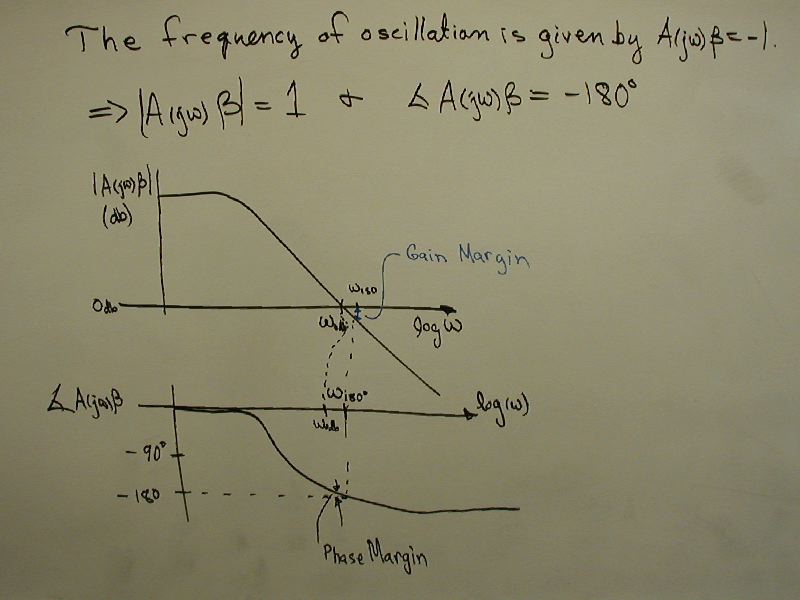 The frequency of oscillation is given by A(jω)β=-1.
⇒ |A(jω)β| = 1 & ∡ A(jω)β = -180°
|A(jω)β|
(db)
Gain Margin
ω180
0db
ω0db
log ω
∡A(jω)β
ω180°
log(ω)
ω0db
-90°
-180
Phase Margin